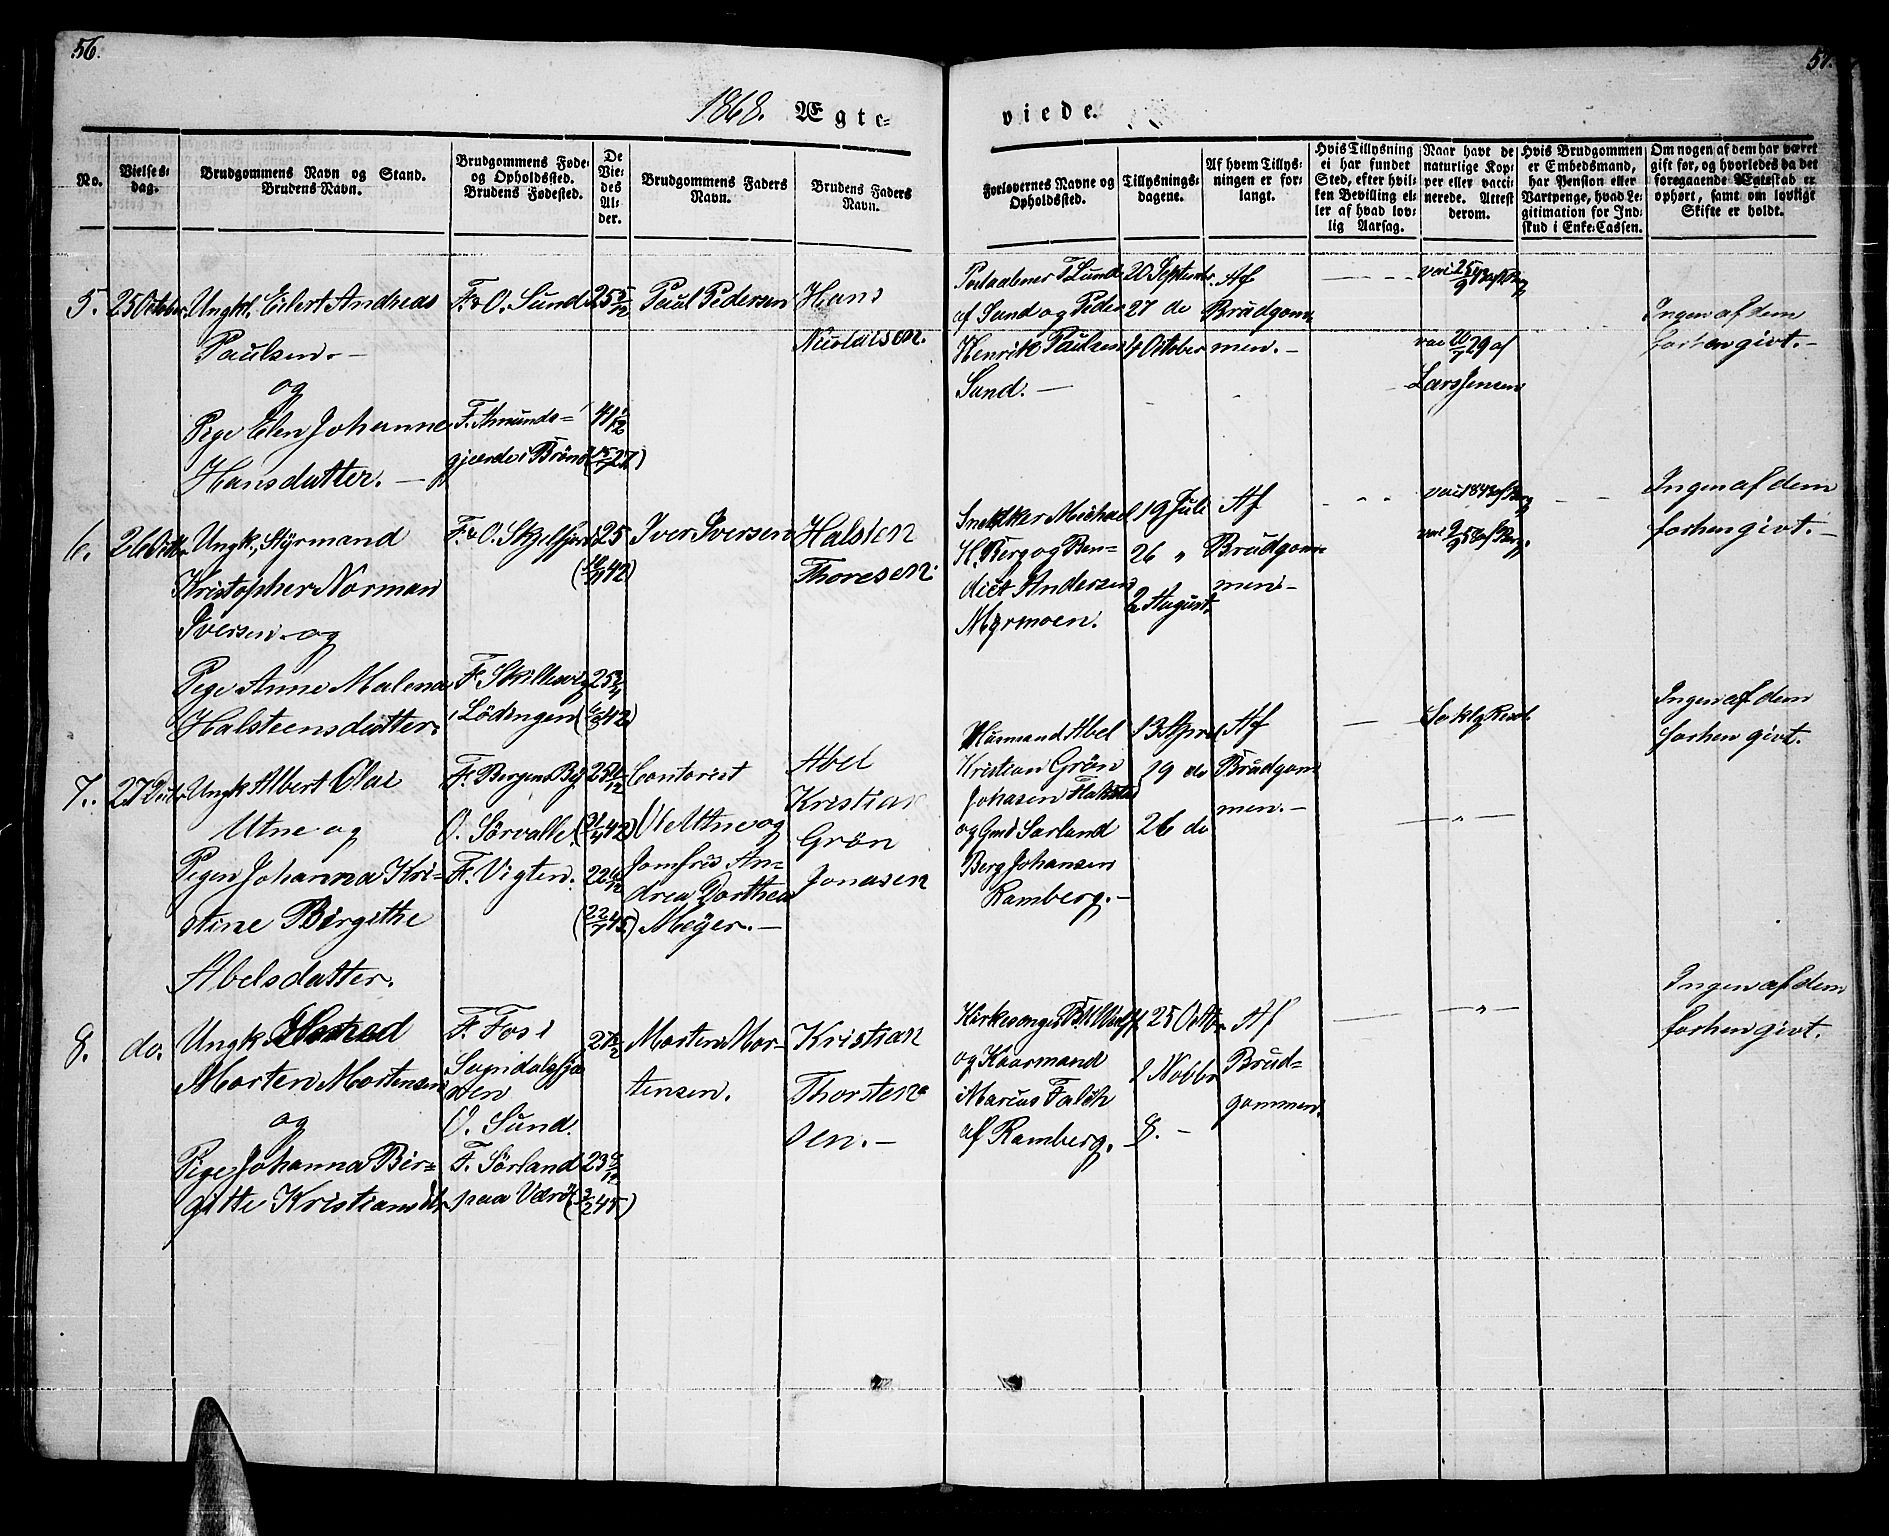 56.
57.
1868. Ægte-
viede.
No.
Vielses-
dag.
Brudgommens Navn og Stand.
Brudens Navn.
Brudgommens Føde-
og Opholdssted.
Brudens Fødested.
De
Vie-
des
Al-
der.
Brudgommens Faders
Navn.
Brudens Faders
Navn.
Forlovernes Navne og
Opholdssted.
Tillysnings-
dagene.
Af hvem Tillys-
ningen er for-
langt.
Hvis Tillysning
ei har fundet
Sted, efter hvil-
ken Bevilling el-
ler af hvad lov-
lig Aarsag.
Naar havt de
naturlige Kop-
per eller vacci-
nerede. Attest
derom.
Hvis Brudgommen
er Embedsmand,
har Pension eller
Vartpenge, hvad Le-
gitimation for Ind-
skud i Enke-Cassen.
Om nogen af dem har været
gift før, og hvorledes da det
foregaaende Ægteskab er
ophørt, samt om lovligt
Skifte er holdt.
5. 25 October Ungk. Eilert Andreas
Paulsen. -
og
Pige Elen Johanne
Hansdatter. -
F. & O. Sund
F. Amunds-
gjærde i Brønø
25 5/12
41 1/12
Paul Pedersen
Hans
Nicolaisen.
af Sund og Peder
Henrik Paulsen
Sund. -
20 Septembr.
27 do
4 October
Af
Brudgom-
men. -
vac 20/7 29 af
Lars Jensen
Ingen af dem
forhen givt. -
6. Ungk. Styrmand
Kristopher Norman
Iversen og
Pige Anne Malena
Halsteensdatter.
F. & O. Skjelfjord
i Lödingen
25
Iver Iversen
Halsten
Thoresen.
Snedker Michael
H. Berg og Ben-
dict Andersen
Myrmoen.
19 Juli
26 "
2 August.
Af
Brudgom-
men -
Ingen af dem
forhen givt. -
7. Ungk Albert Olai
Utne og
Pigen Johanna Kri-
stine Birgithe
Abelsdatter.
F. Bergens By
O. Sörvalle.
F. Vigten.
Contorist
Ole Utne og
Jomfru An-
drea Dorthea
Meyer. -
Abel
Kristian
Grön
Jonasen
Huusmand Abel
Kristian Grön
Johasen Flakstad
Berg Johansen
Ramberg. -
13 April
19 do
26 do
Af
Brudgom
men. -
Ingen af dem
forhen givt.
8. do. Ungk
Morten Mortensen
og
Pige Johanna Bir-
gitte Kristiansdtr
F. Fos i
O. Sund.
F. Sörland
paa Værö
Morten Mor-
tensen.
Kristian
Thorsten-
sen. -
Kirkesanger
og Kaarmand
Marius Falch
af Ramberg.
25 Octbr
1 Novbr
8. -
Af
Brud-
gommen.
Ingen af dem
forhen givt.